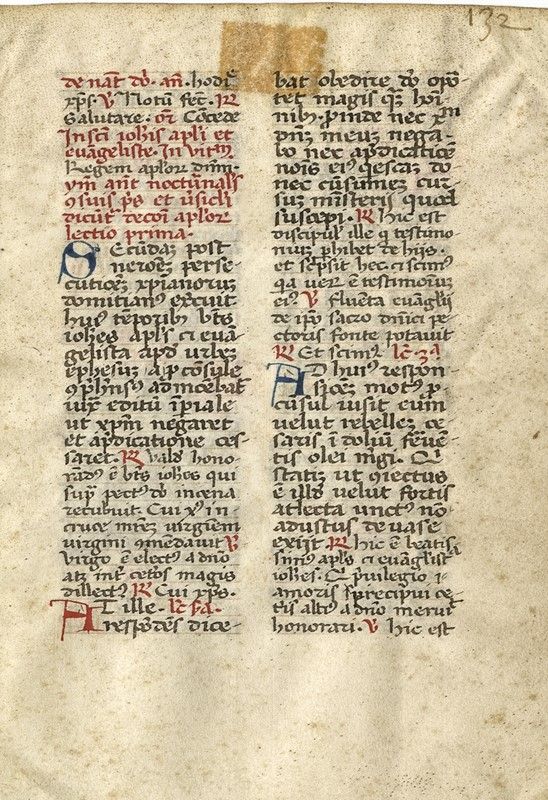 132
de nat̄ dō. an̄. hodie
xp̄s. ℣ Notū fec̄. ℟
Salutare. or̄ Cōcede
In sc̄i ioh̄is ap̄li et
euāgeliste. In vit̄m
Regem aplōr dn̄m.
ym̄ ant̄ nocturnal̄s
ꝯsuis p̄s et ūsicl̄i
dicūt de cōi aplōr
lectio prima.
Secūdaꝫ post
neroneꝫ perse
cutioneꝫ xp̄ianorum
domitianꝰ exercuit
huiꝰ tēporibꝫ bt̄s
ioh̄es apl̄s ⁊ euā
gelista apd̄ urbeꝫ
ephesuꝫ a p̄cōsule
ꝯp̄hensꝰ admoneba͞t
iuxᵃ edictū īpiale
ut xp̄m negaret
et a p̄dicatione ces
saret. ℟ Valde hono
rādꝰ ē bt̄s ioh̄es qui
supᵃ pectꝰ dō in cena
recubuit. Cui xp̄s in
cruce mr̄eꝫ uirginem
uirgini ꝯmēdauit ℣
Virgo ē electꝰ a dn̄o
atqꝫ int̄ cet̄os magis
dilectꝰ ℟ Cui xp̄s.
At ille. lc̄. 2a.
respōdēs dice-
bat obedire dō opo-
tet magis qꝫ homi
nibꝫ. proinde nec xp̄m
dn̄m meuꝫ nega-
bo nec a p̄dicatiōe
nois eiꝰ qescaꝫ do
nec cūsumeꝫ cur
suꝫ misterii quod
suscepi. ℟ hic est
discipulꝰ ille q̄ testimo
niuꝫ phibet de hiis.
et sc̄psit hec. ⁊ scimꝰ
qa ver ē testimoniū
eiꝰ. ℣ flueta euāgl̄ij
de ip̄o sacro dn̄ici pe
ctoris fonte potauit
℟ Et scimꝰ. lc̄. 3a.
Ad huiꝰ respon-
sioneꝫ motꝰ p̄-
cūsul iusit eum
uelut rebelleꝫ ce
saris ī doliū ferue͞-
tis olei mg̅i. Q̄
statiꝫ ut ꝯiectus
ē illd̄ velut fortis
atleta unctꝰ no͞
adustus de uase
exiit. ℟ hic ē beatis
simꝰ apl̄s ⁊ euāgl̄ist
ioh̄es. Q̄ p̄uilegio i
amoris p̄recipui ce
tis altiꝰ a dn̄o meruit
honorari. ℣ hic est